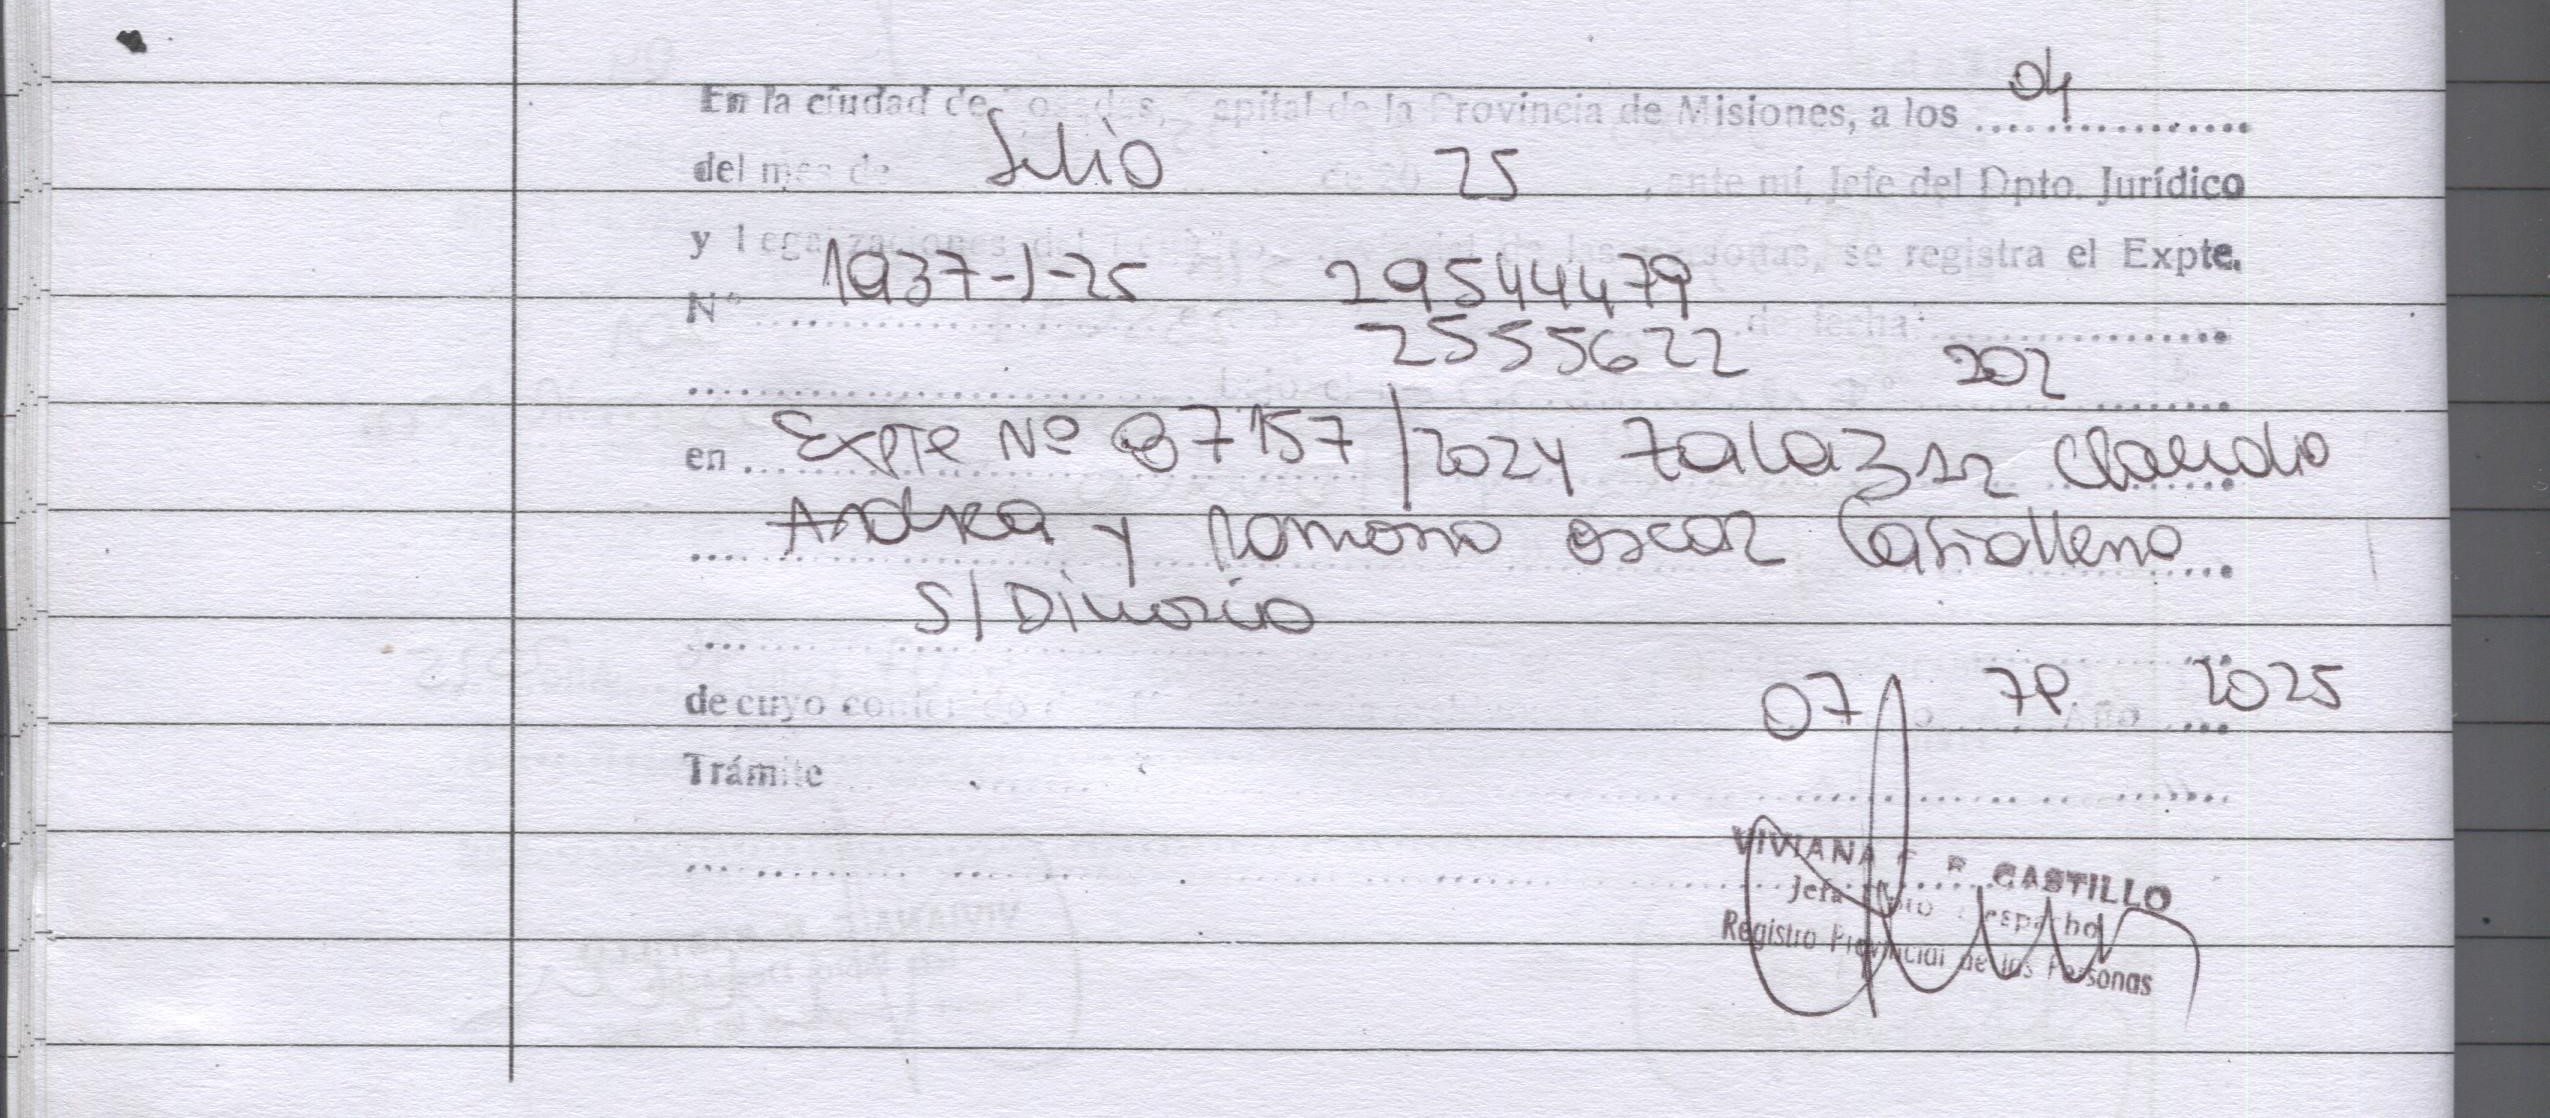 En la ciudad de Posadas, Capital de la Provincia de Misiones, a los 04
del mes de Julio de 20 25, ante mí, Jefe del Dpto. Jurídico
y Legalizaciones del de las Personas, se registra el Expte.
N° 1937-J-25 29544479
2555622 de fecha:
bajo el 202
en Expte Nº 87157/2024 Zalazar Claudia
Andrea y Romero Oscar
S/Divorcio
de cuyo contenido 07 78 Año 2025
Trámite
VIVIANA CASTILLO
Jefa Dpto Despacho
Registro Provincial de las Personas